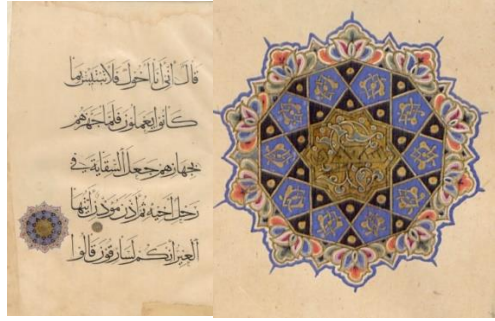 قال اني انا اخوك فلا تبتئس بما
كانوا يعملون فلما جهزهم
بجهازهم جعل السقاية في
رحل اخيه ثم اذن موذن ايتها
العير انكم لسارقون قالوا